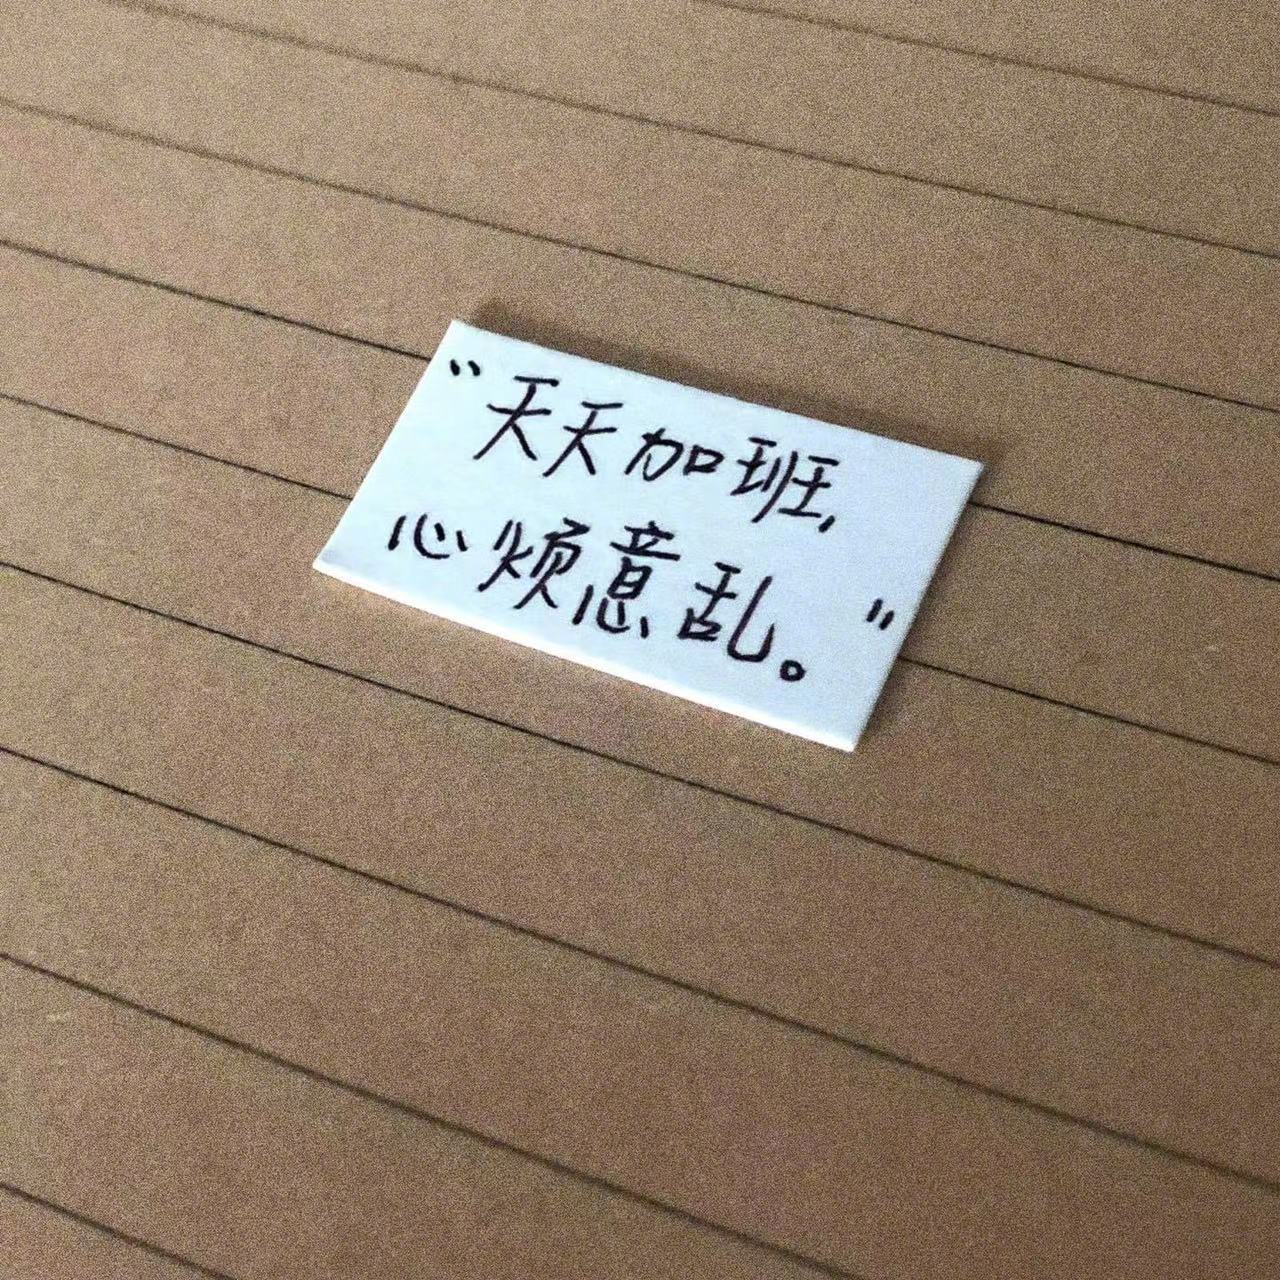 “天天加班,
心烦意乱。”